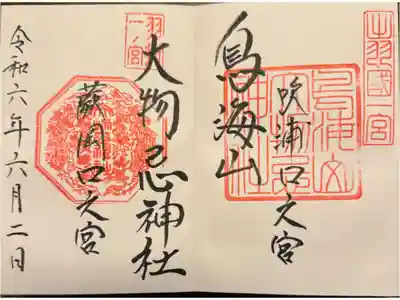 出羽國一宮
鳥海山
吹浦口之宮
大物忌神社
蕨岡口之宮
令和六年六月二日